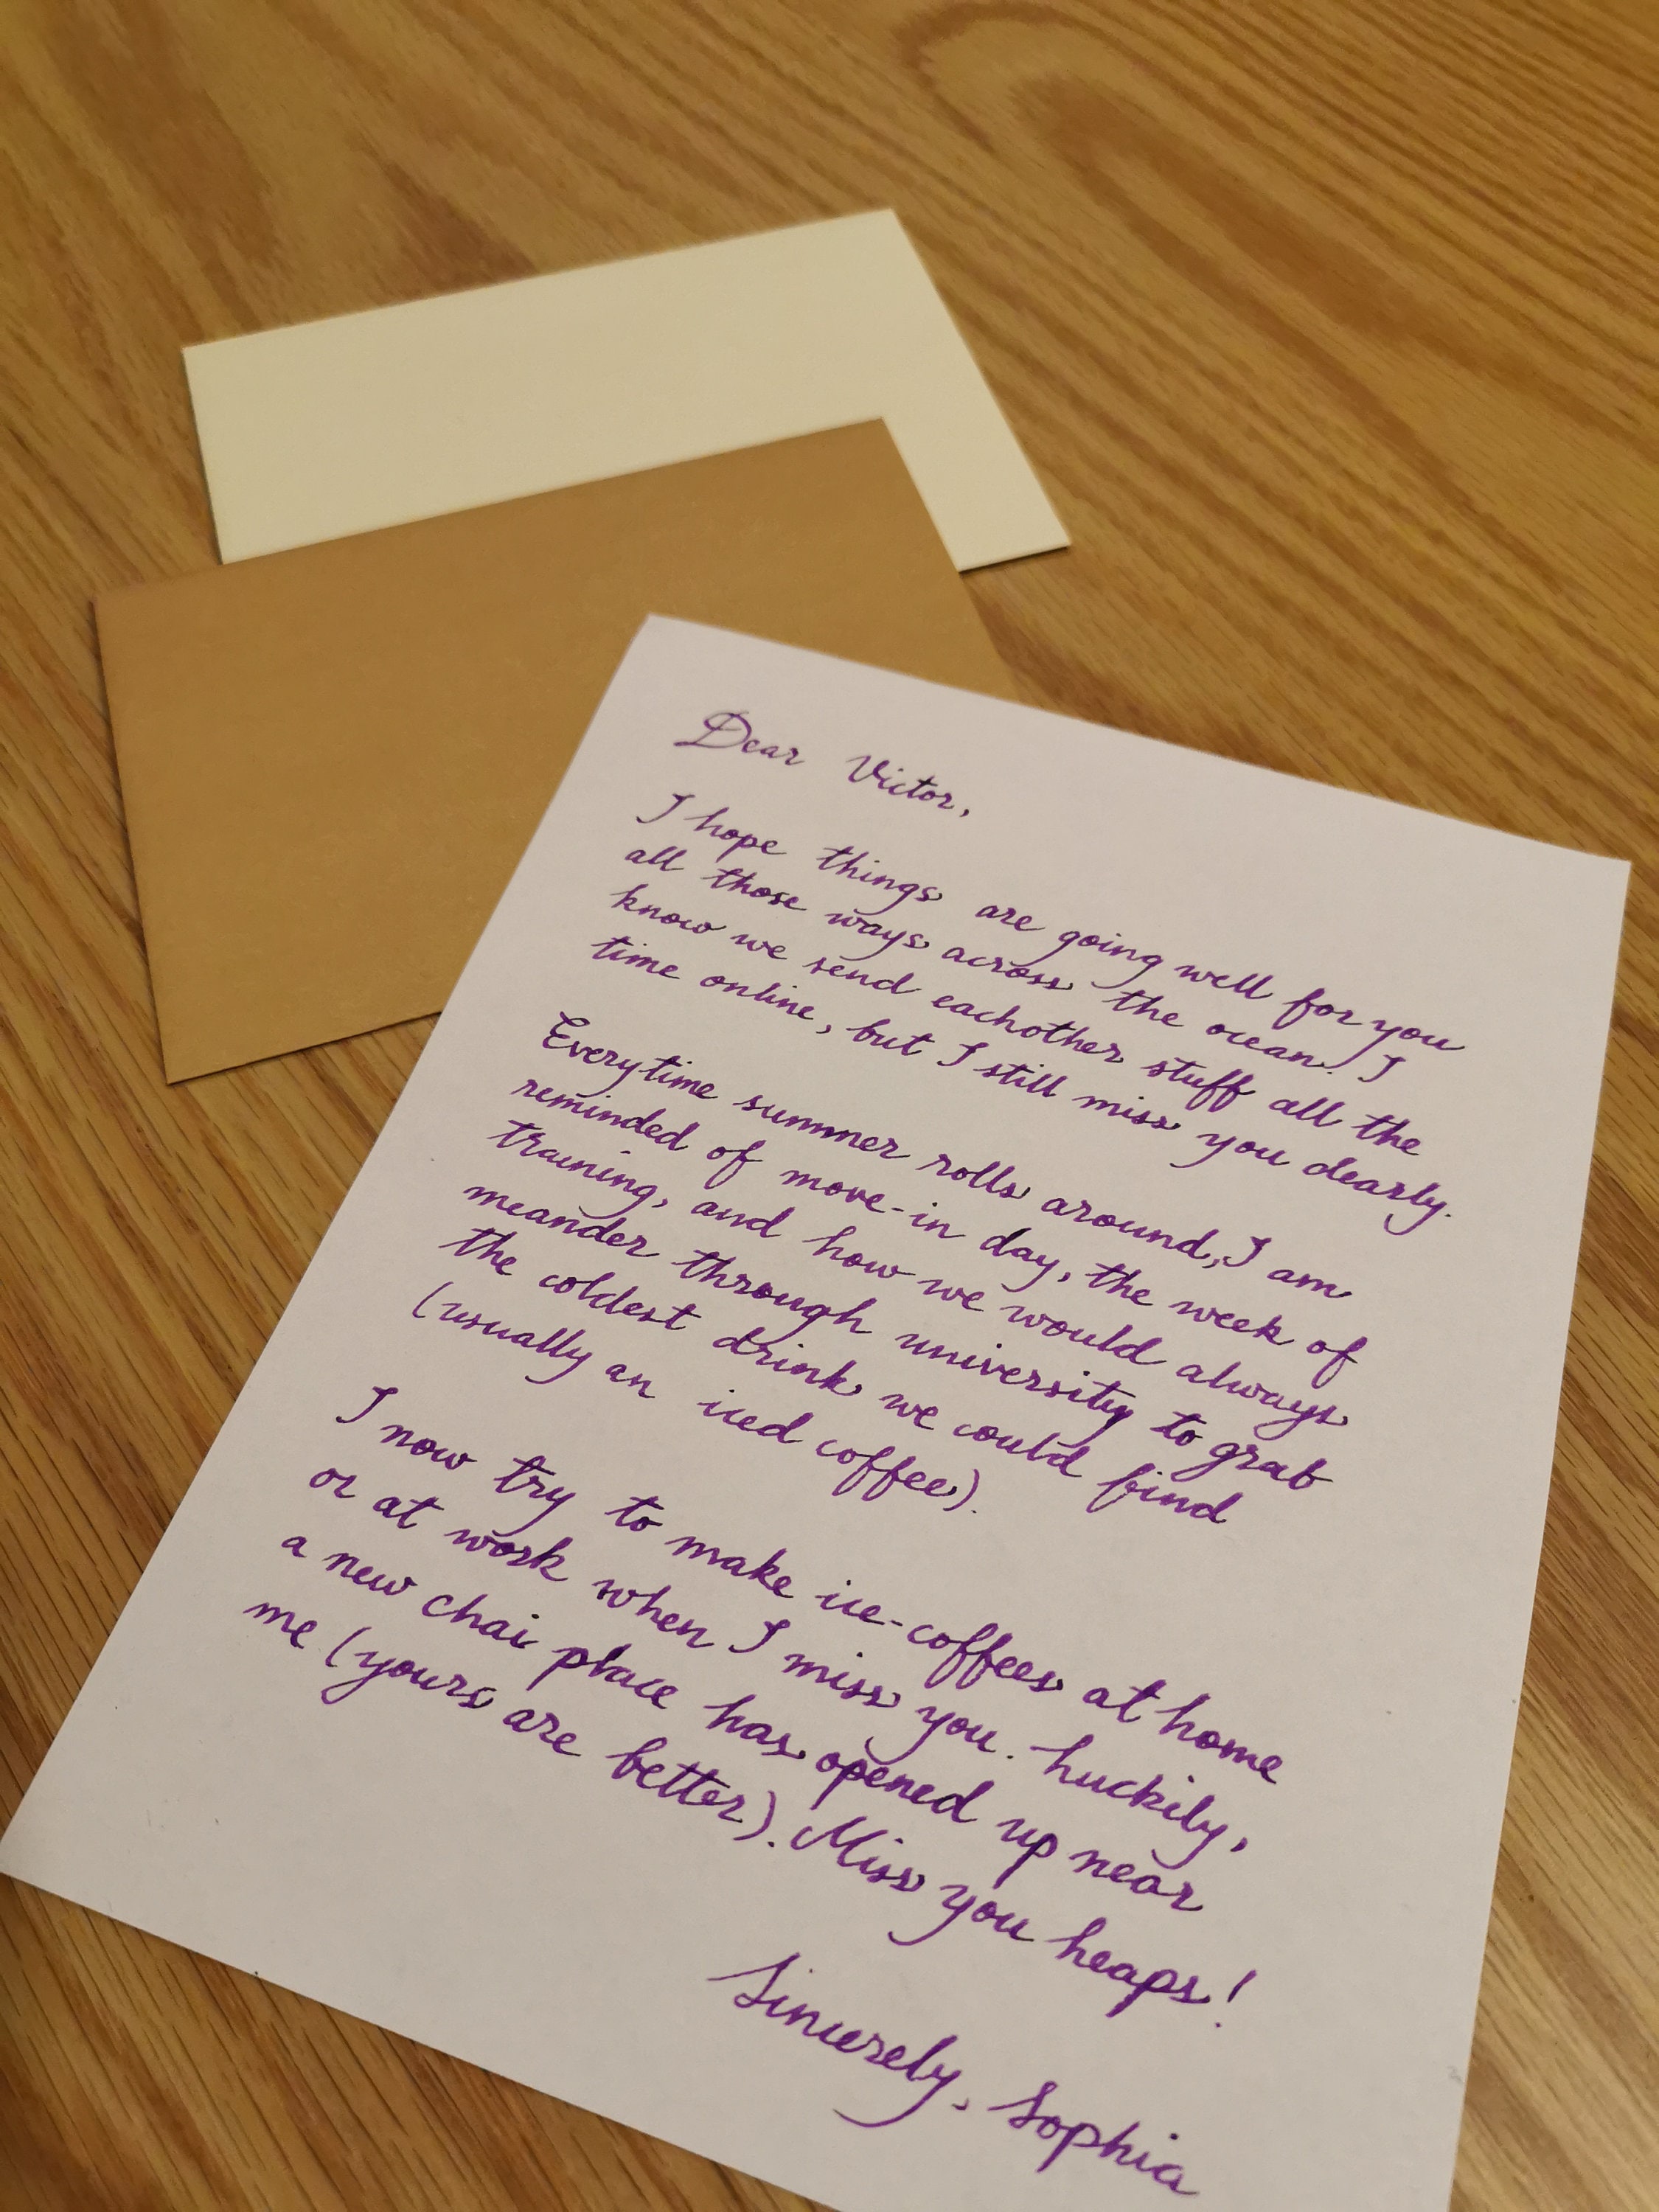 Dear Victor,
I hope things are going well for you
all those ways across the ocean. I
know we send eachother stuff all the
time online, but I still miss you dearly.
Everytime summer rolls around, I am
reminded of move-in day, the week of
training, and how we would always
meander through university to grab
the coldest drink we could find
(usually an iced coffee).
I now try to make ice-coffees at home
or at work when I miss you. Luckily,
a new chai place has opened up near
me (yours are better). Miss you heaps!
Sincerely, Sophia